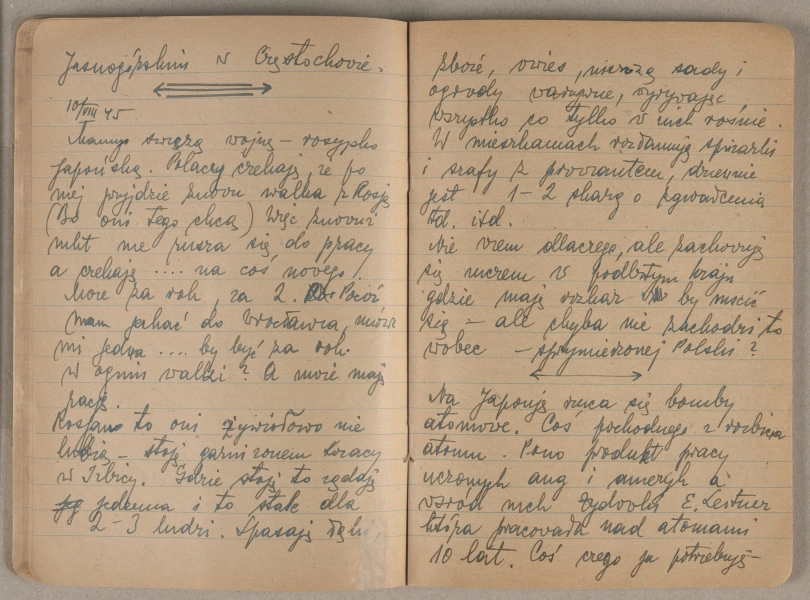 Jasnogórskim w Częstochowie.
10/VIII 45
Mamy świeżą wojnę – rosyjsko
japońską. Polacy czekają, że po
niej przyjdzie znowu walka z Rosją
(Bo oni tego chcą) Więc znowu
nikt nie rusza się do pracy
a czekają .... na coś nowego.
Może za rok, za 2. Pocóż
mam jechać do Wrocławia, mówi
mi jedna .... by być za rok
w ogniu walki? A może mają
rację.
Rosjan to oni żywiołowo nie
lubią – stoją garnizonem kozacy
w Izbicy. Gdzie stoją to żądają
jedzenia i to stale dla
2–3 ludzi. Spasają łąki,
zboże, owies, niszczą sady i
ogrody warzywne, wyrywając
wszystko co tylko w nich rośnie.
W mieszkaniach rozbijają spiżarki
i szafy z prowiantem, dziennie
jest 1–2 skarg o zgwałcenia
itd. itd.
Nie wiem dlaczego, ale zachowują
się niczem w podbitym kraju
gdzie mają rozkaz by mścić
się – ale chyba nie zachodzi to
wobec – sprzymierzonej Polski?
Na Japonję rzuca się bomby
atomowe. Coś pochodnego z rozbicia
atomu. Pono produkt pracy
uczonych ang i ameryk a
wśród nich żydówka E. Leitner
która pracowała nad atomami
10 lat. Coś czego ja potrzebuję –